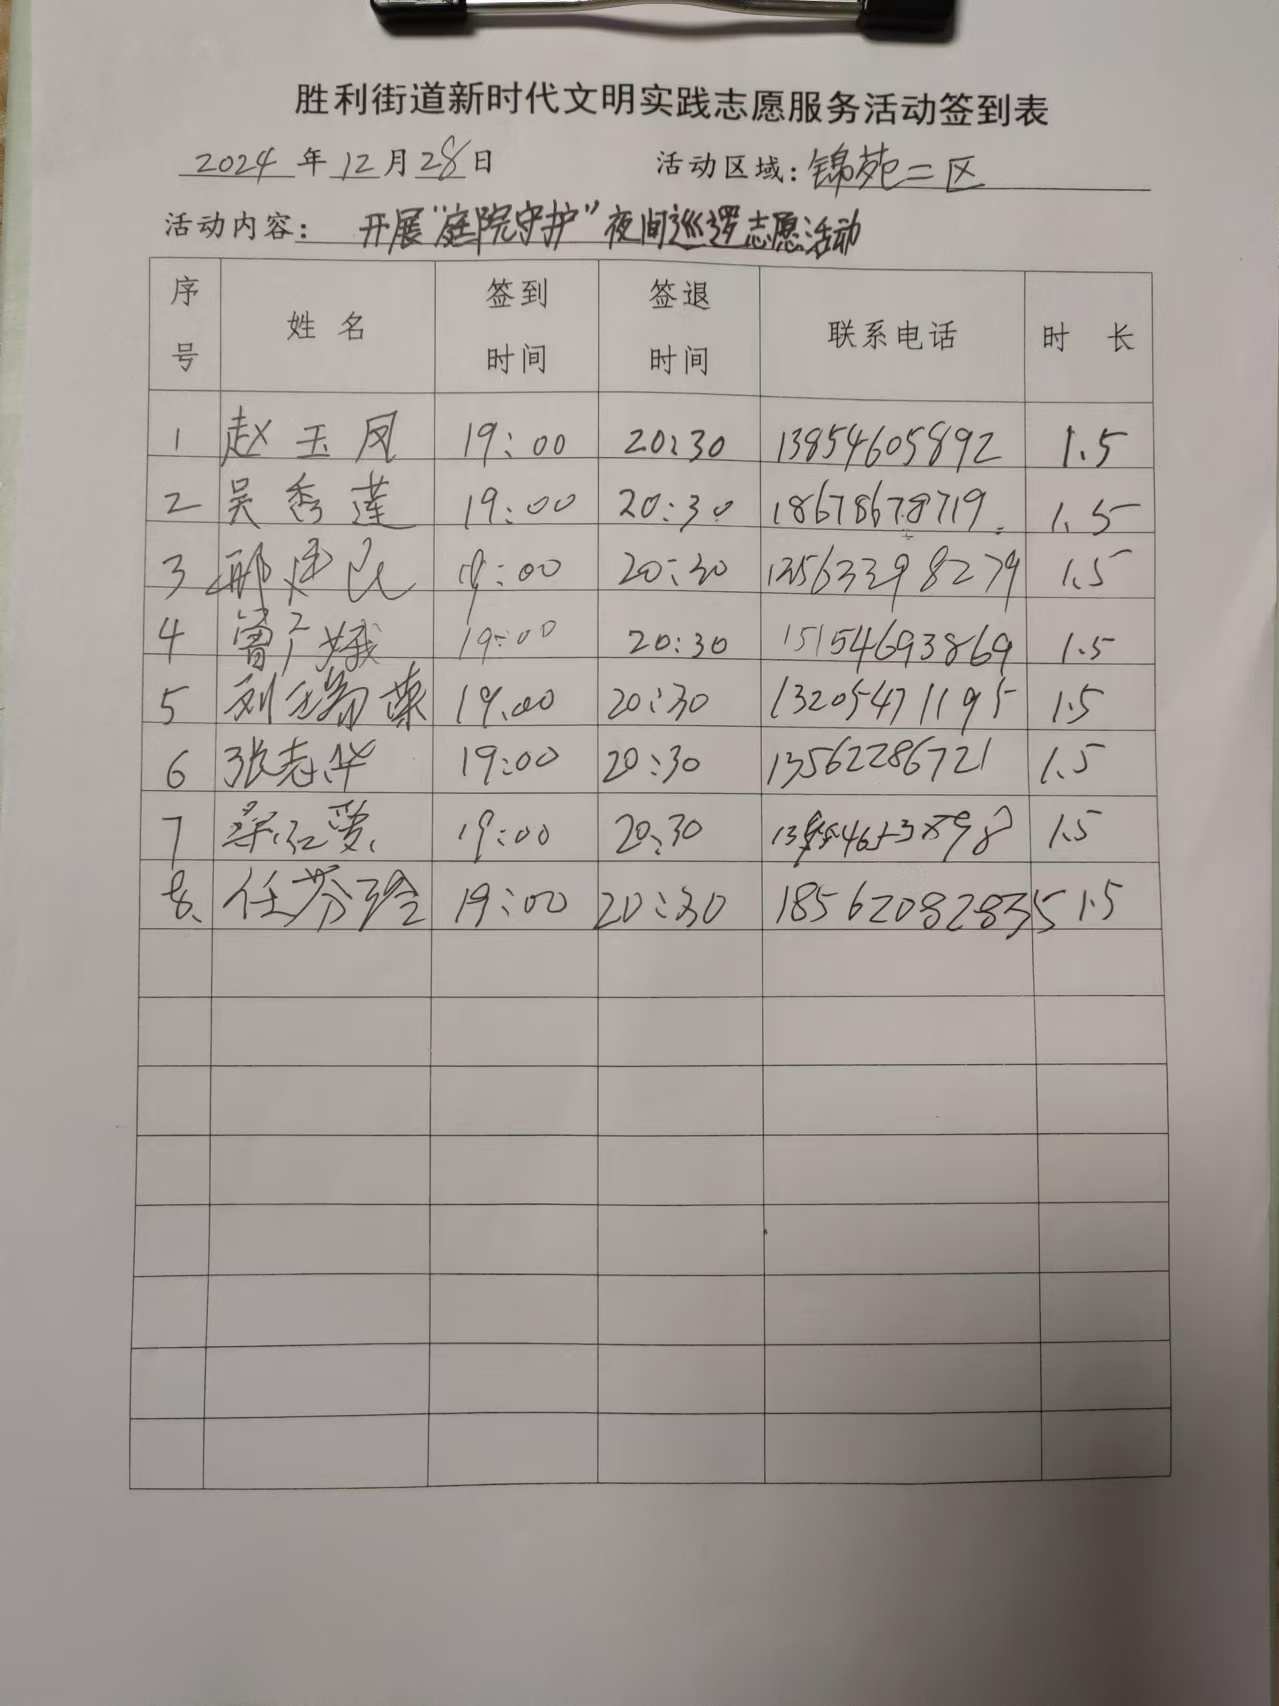 胜利街道新时代文明实践志愿服务活动签到表
2024 年 12 月 28 日 活动区域: 锦苑二区
活动内容: 开展“庭院守护”夜间巡逻志愿活动
序号 姓名 签到时间 签退时间 联系电话 时长
1 赵玉凤 19:00 20:30 13854605892 1.5
2 吴秀莲 19:00 20:30 18678678719. 1.5
3 邢建民 19:00 20:30 13563398279 1.5
4 曾广娥 19:00 20:30 15154693869 1.5
5 刘玉菊荣 19:00 20:30 13205471195 1.5
6 张志华 19:00 20:30 13562286721 1.5
7 19:00 20:30 1.5
8. 任芬玲 19:00 20:30 18562082835 1.5